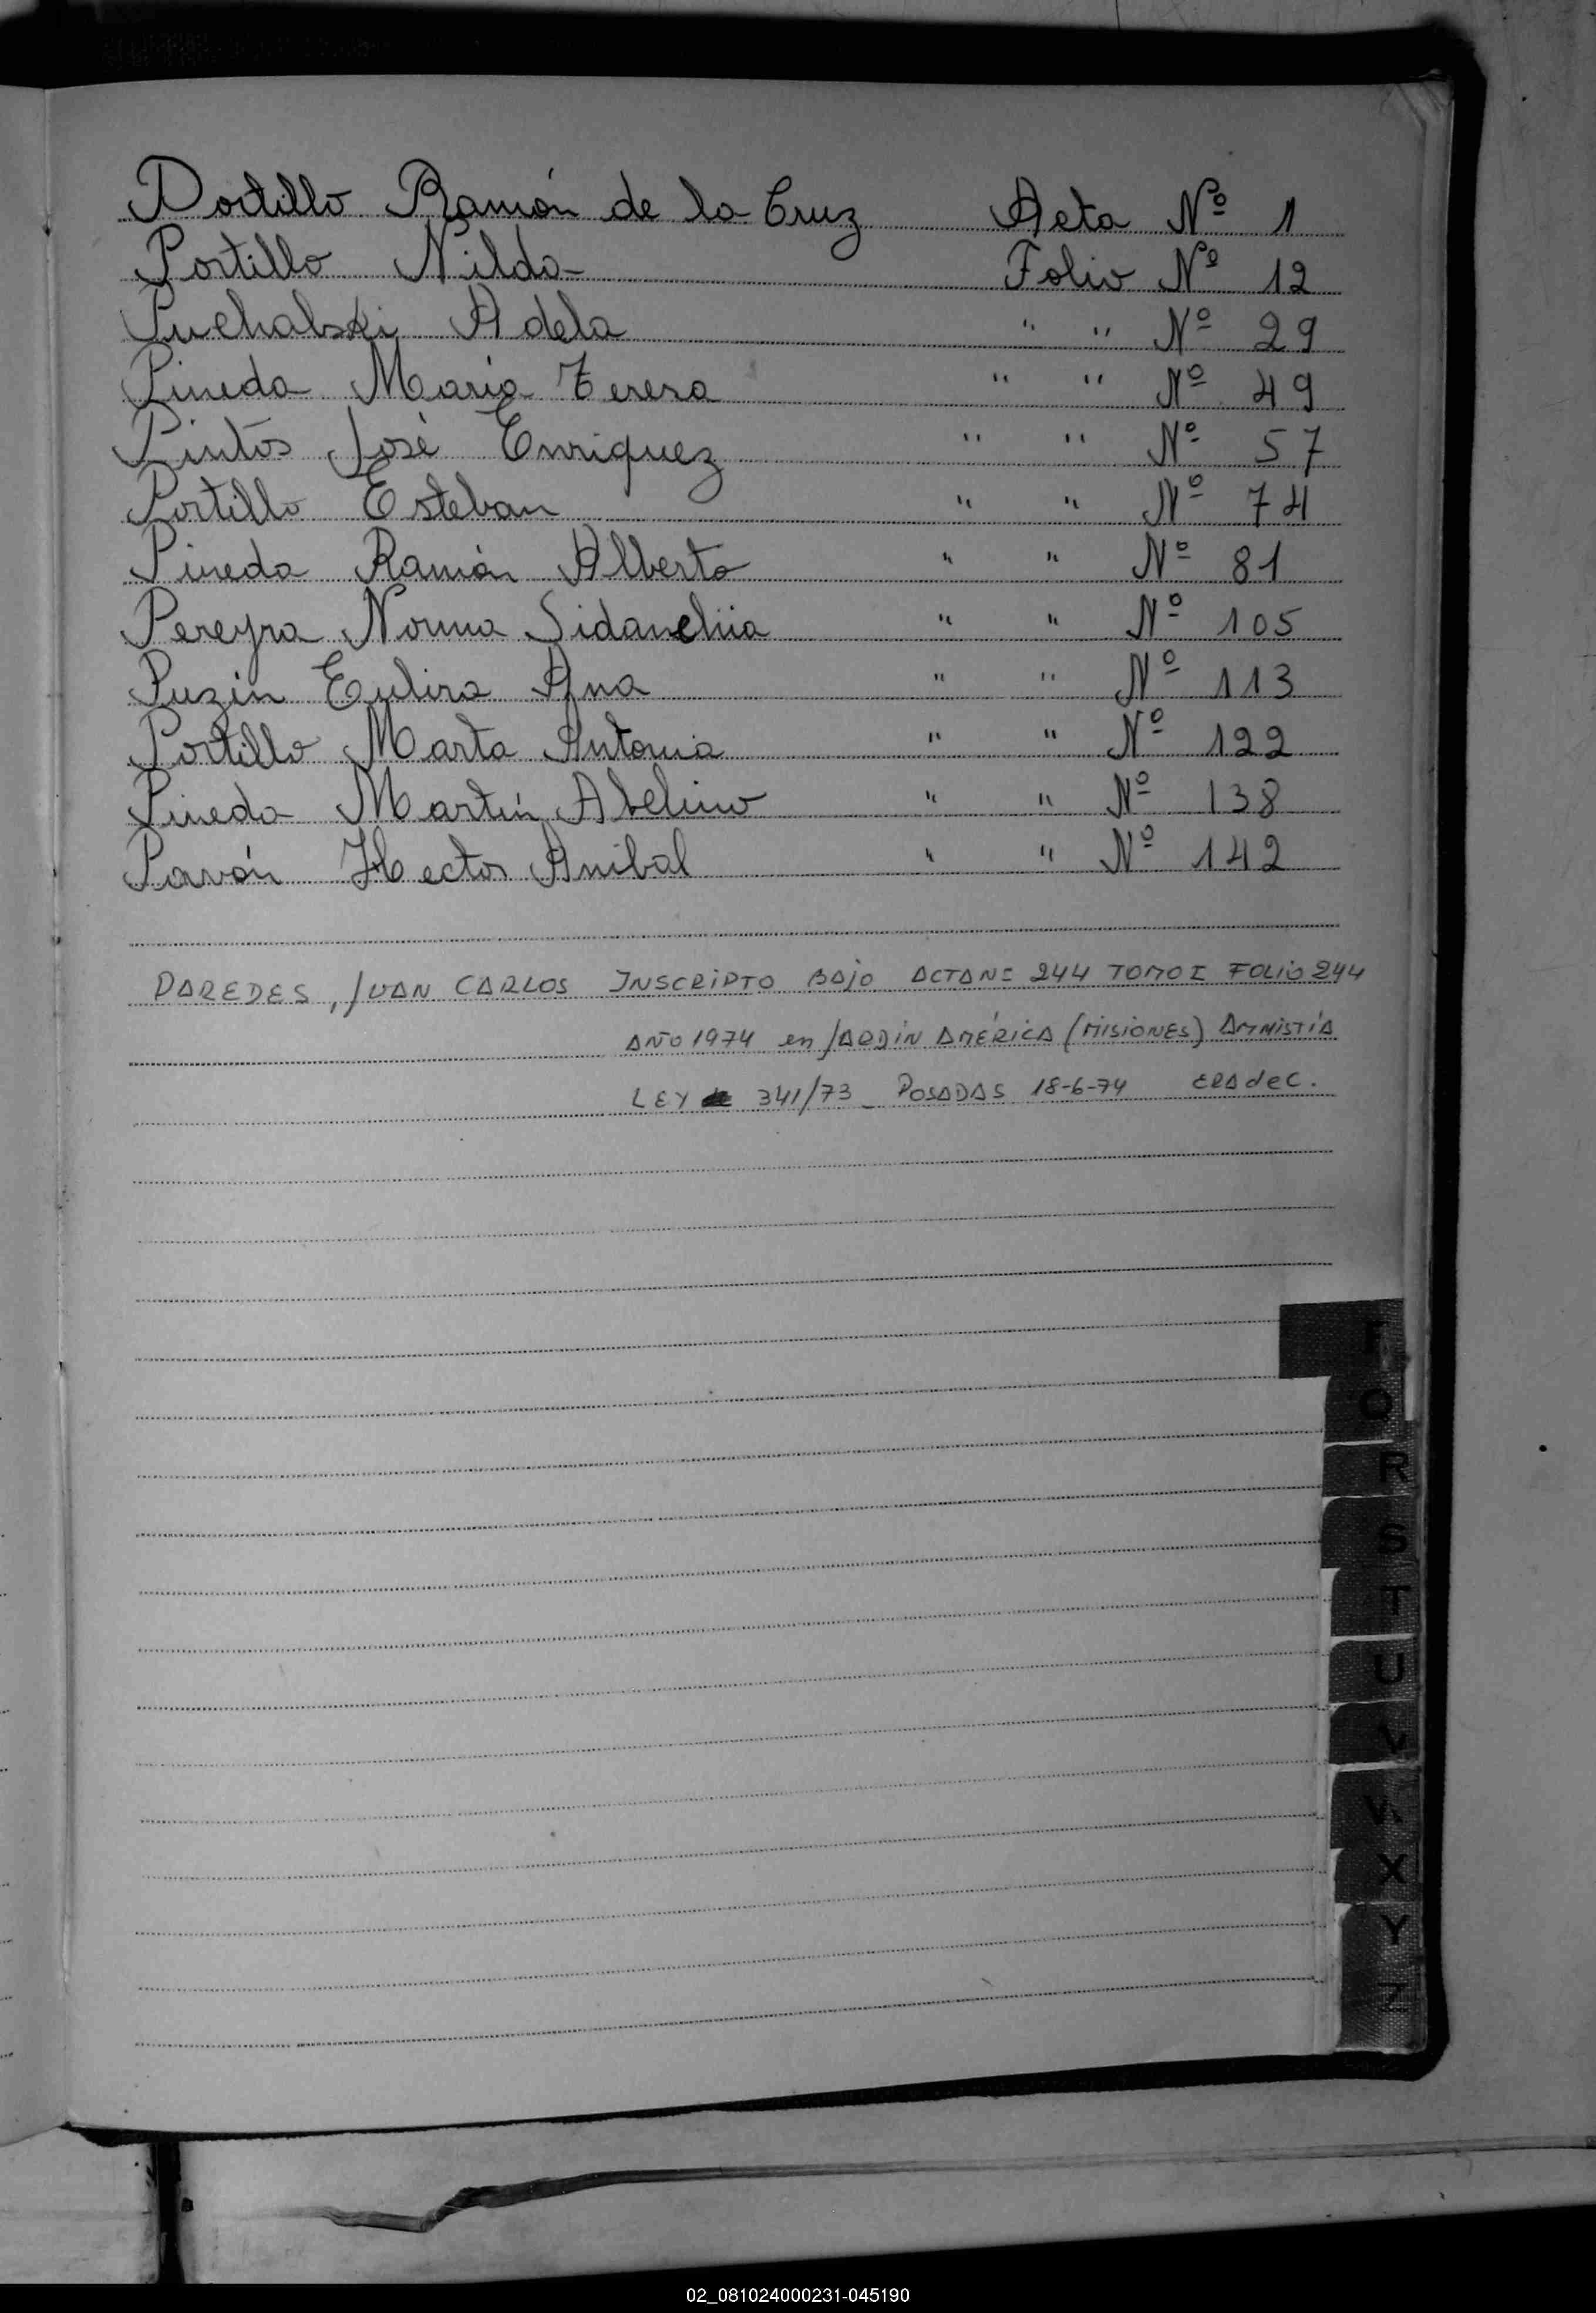 Portillo Ramón de la Cruz Acta Nº 1
Portillo Nilda Folio Nº 12
Puchalski Adela " " Nº 29
Pineda María Teresa " " Nº 49
Pintos José Enriquez " " Nº 57
Portillo Esteban " " Nº 74
Pineda Ramón Alberto " " Nº 81
Pereyra Norma " " Nº 105
Puzin Ana " " Nº 113
Portillo Marta Antonia " " Nº 122
Pineda Martín Abelino " " Nº 138
Pavón Hector Anibal " " Nº 142
PAREDES, JUAN CARLOS INSCRIPTO BAJO ACTA Nº 244 TOMO I FOLIO 244
AÑO 1974 en JARDIN AMÉRICA (MISIONES) AMNISTÍA
LEY 341/73 _ POSADAS 18-6-74
P
Q
R
S
T
U
V
W
X
Y
Z
02_081024000231-045190